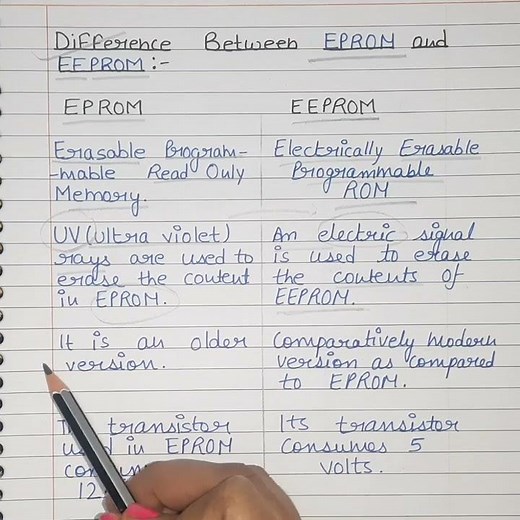 Difference Between EPROM and
EEPROM :-
EPROM
Erasable Program-
-mable Read Only
Memory.
UV (Ultra violet)
rays are used to
erase the content
in EPROM.
It is an older
version.
transistor
in EPROM
12
EEPROM
Electrically Erasable
Programmable
ROM
An electric signal
is used to erase
the contents of
EEPROM.
Comparatively modern
version as compared
to EPROM.
Its transistor
consumes 5
volts.